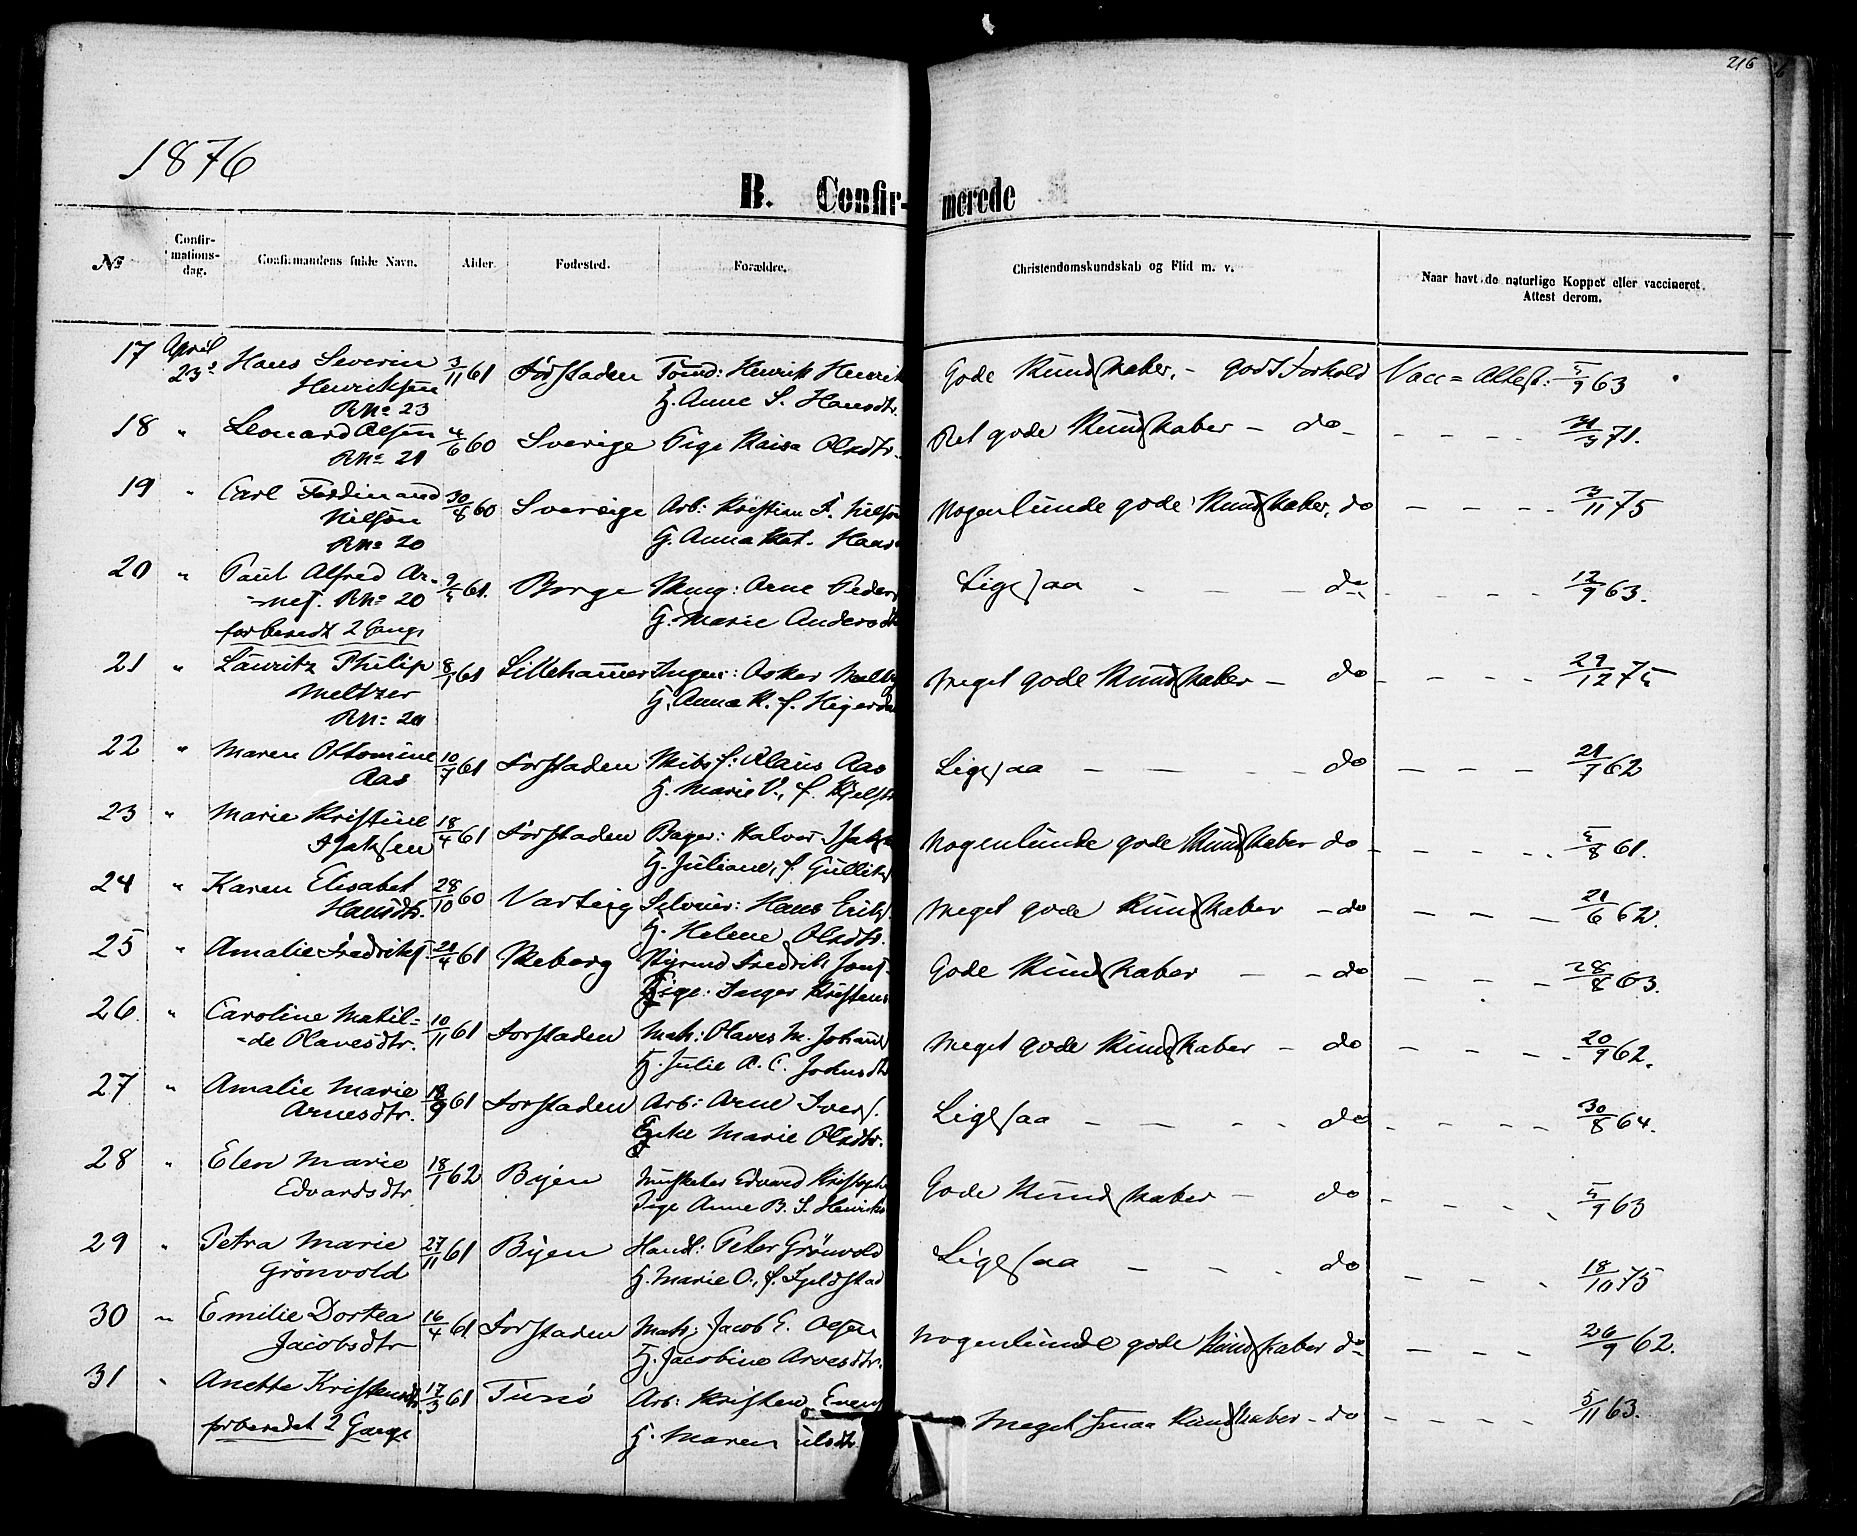 216
1876
B. Confir- merede
No
Confir-
mations-
dag.
Confirmandens fulde Navn.
Alder.
Fødested.
Forældre.
Christendomskundskab og Flid m. v.
Naar havt de naturlige Kopper eller vaccineret.
Attest derom.
17 April 23 Hans Severin 3/11 61 Forstaden Tømd: Henrik Henrik Gode Kundskaber. - godt Forhold Vacc = Attest: 5/9 63
Henriksen G. Anne S. Hansdtr.
R.No 23
18 " Leonard Olsen 4/6 60 Sverige Pige Kaisa Olsdtr. Ret gode Kundskaber - do - - - - 71.
R.No 21
19 " Carl Ferdinand 30/8 60 Sverige Arb: Kristian F. Nilsen Nogenlunde gode Kundskaber, do - - - - /11 75
Nilsen G. Anna Kat. Hans
R.No 20
20 " Paul Alfred Ar- 61. Borge Arne Peders Ligesaa - - - do - - - - 12/9 63.
-nes. R.No 20 G. Marie Andersdt
forberedt 2 Gange
21 " Lauritz Philip 61 Lillehamer Ingen: Asker Meget gode Kundskaber - do - - - - 29/12 75
Meltzer G. Anna K. f.
R.No 21
22 " Maren Ottomine 10/7 61 Forstaden Klaus Aas Ligesaa - - - - do - - - - 62
Aas G. Marie V., f.
23 " Marie Kristine 18/4 61 Forstaden Bager: Halvor Isaks Nogenlunde gode Kundskaber do - - - - 5/8 61.
Isaksen G. Juliane, f. Gulliks
24 " Karen Elisabet 28/10 60 Varteig Selveier: Hans Eriks. Meget gode Kundskaber - do - - - 21/6 62.
Hansdtr. G. Helene Olsdtr.
25 " Amalie Fredriks 21/4 61 Skeberg Styrmd Fredrik Jons. Gode Kundskaber - - do - - - 28/8 63.
Pige: Inger Kristens
26 " Caroline Matil- 10/11 61 Forstaden Matr: Olaves M. Johans Meget gode Kundskaber - do - - - - 20/9 62.
-de Olavesdtr. G. Julie A. C. Johnsdt
27 " Amalie Marie 61 Forstaden Arb: Arne Ivers. Ligesaa - - - - do - - - - 30/8 64.
Arnesdtr. Enke Marie Olsdtr.
28 " Elen Marie 18/1 62 Byen Edvard Kristoph Gode Kundskaber - do - - - 63
Edvardsdtr Pige Anne B. S. Henriks
29 " Petra Marie 27/11 61 Byen Handl: Peter Grönvold Ligesaa - - - do - - - 18/10 75
Grönvold G. Marie O., f. Fjeldstad
30 " Emilie Dortea 16/4 61 Forstaden Matr: Jacob E. Olsen Nogenlunde gode Kundskaber do - - - 26/9 62.
Jacobsdtr G. Jacobine Arvesdtr.
31 " Anette Kristensdtr 17/3 61 Tunö Arb: Kristen Evens Meget smaa Kundskaber - do - - - - 5/11 63.
forberedet 2 Gange G. Maren